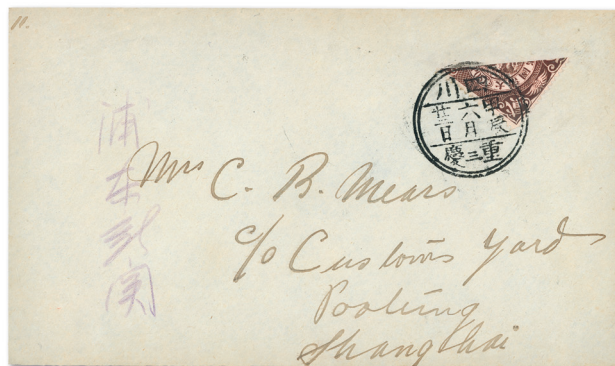 11.
四川
甲辰
六月
日
重三慶
Mrs C. B. Mears
c/o Customs Yard
Pootung
Shanghai
浦东関